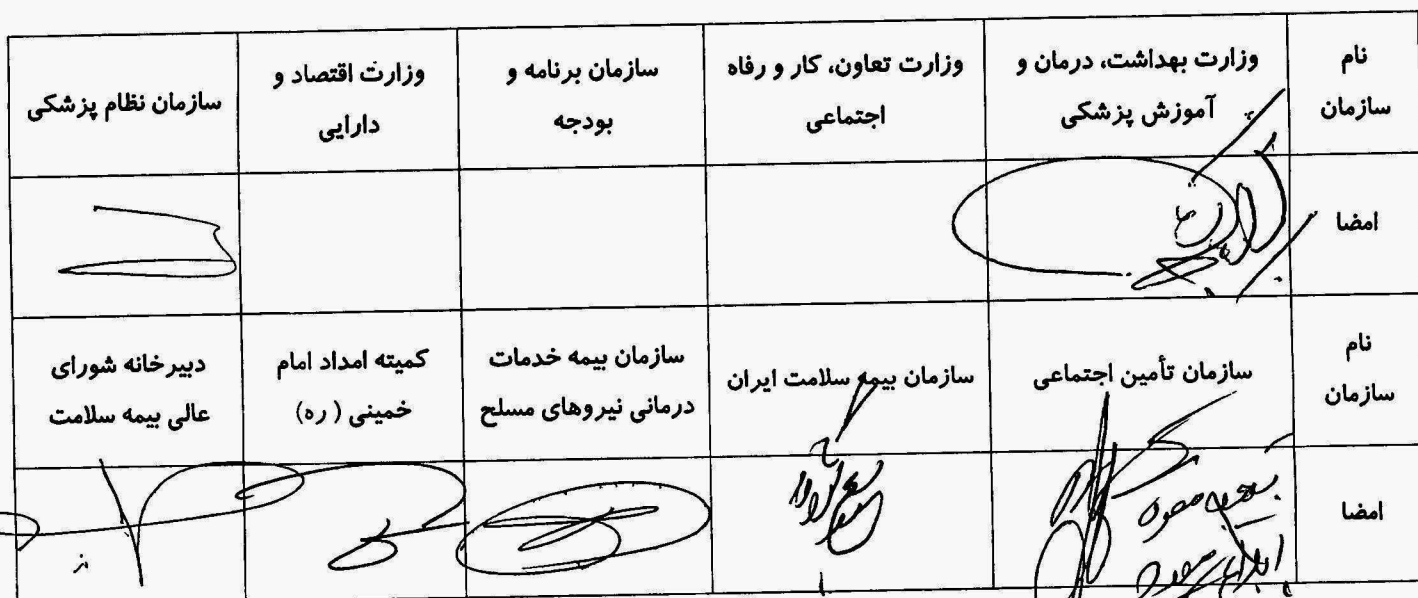 نام سازمان
وزارت بهداشت، درمان و آموزش پزشکی
وزارت تعاون، کار و رفاه اجتماعی
سازمان برنامه و بودجه
وزارت اقتصاد و دارایی
سازمان نظام پزشکی
امضا
نام سازمان
سازمان تأمین اجتماعی
سازمان بیمه سلامت ایران
سازمان بیمه خدمات درمانی نیروهای مسلح
کمیته امداد امام خمینی (ره)
دبیرخانه شورای عالی بیمه سلامت
امضا